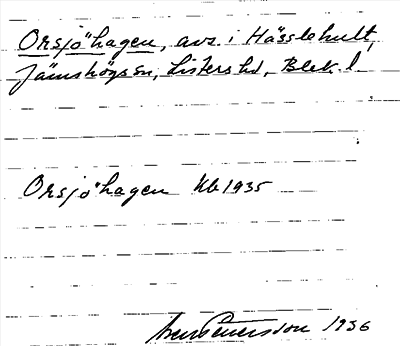 Orsjöhagen, avs. i Hässlehult,
Jämshögs sn, Listers hd, Blek. l.
Orsjöhagen Kb 1935
Petersson 1936